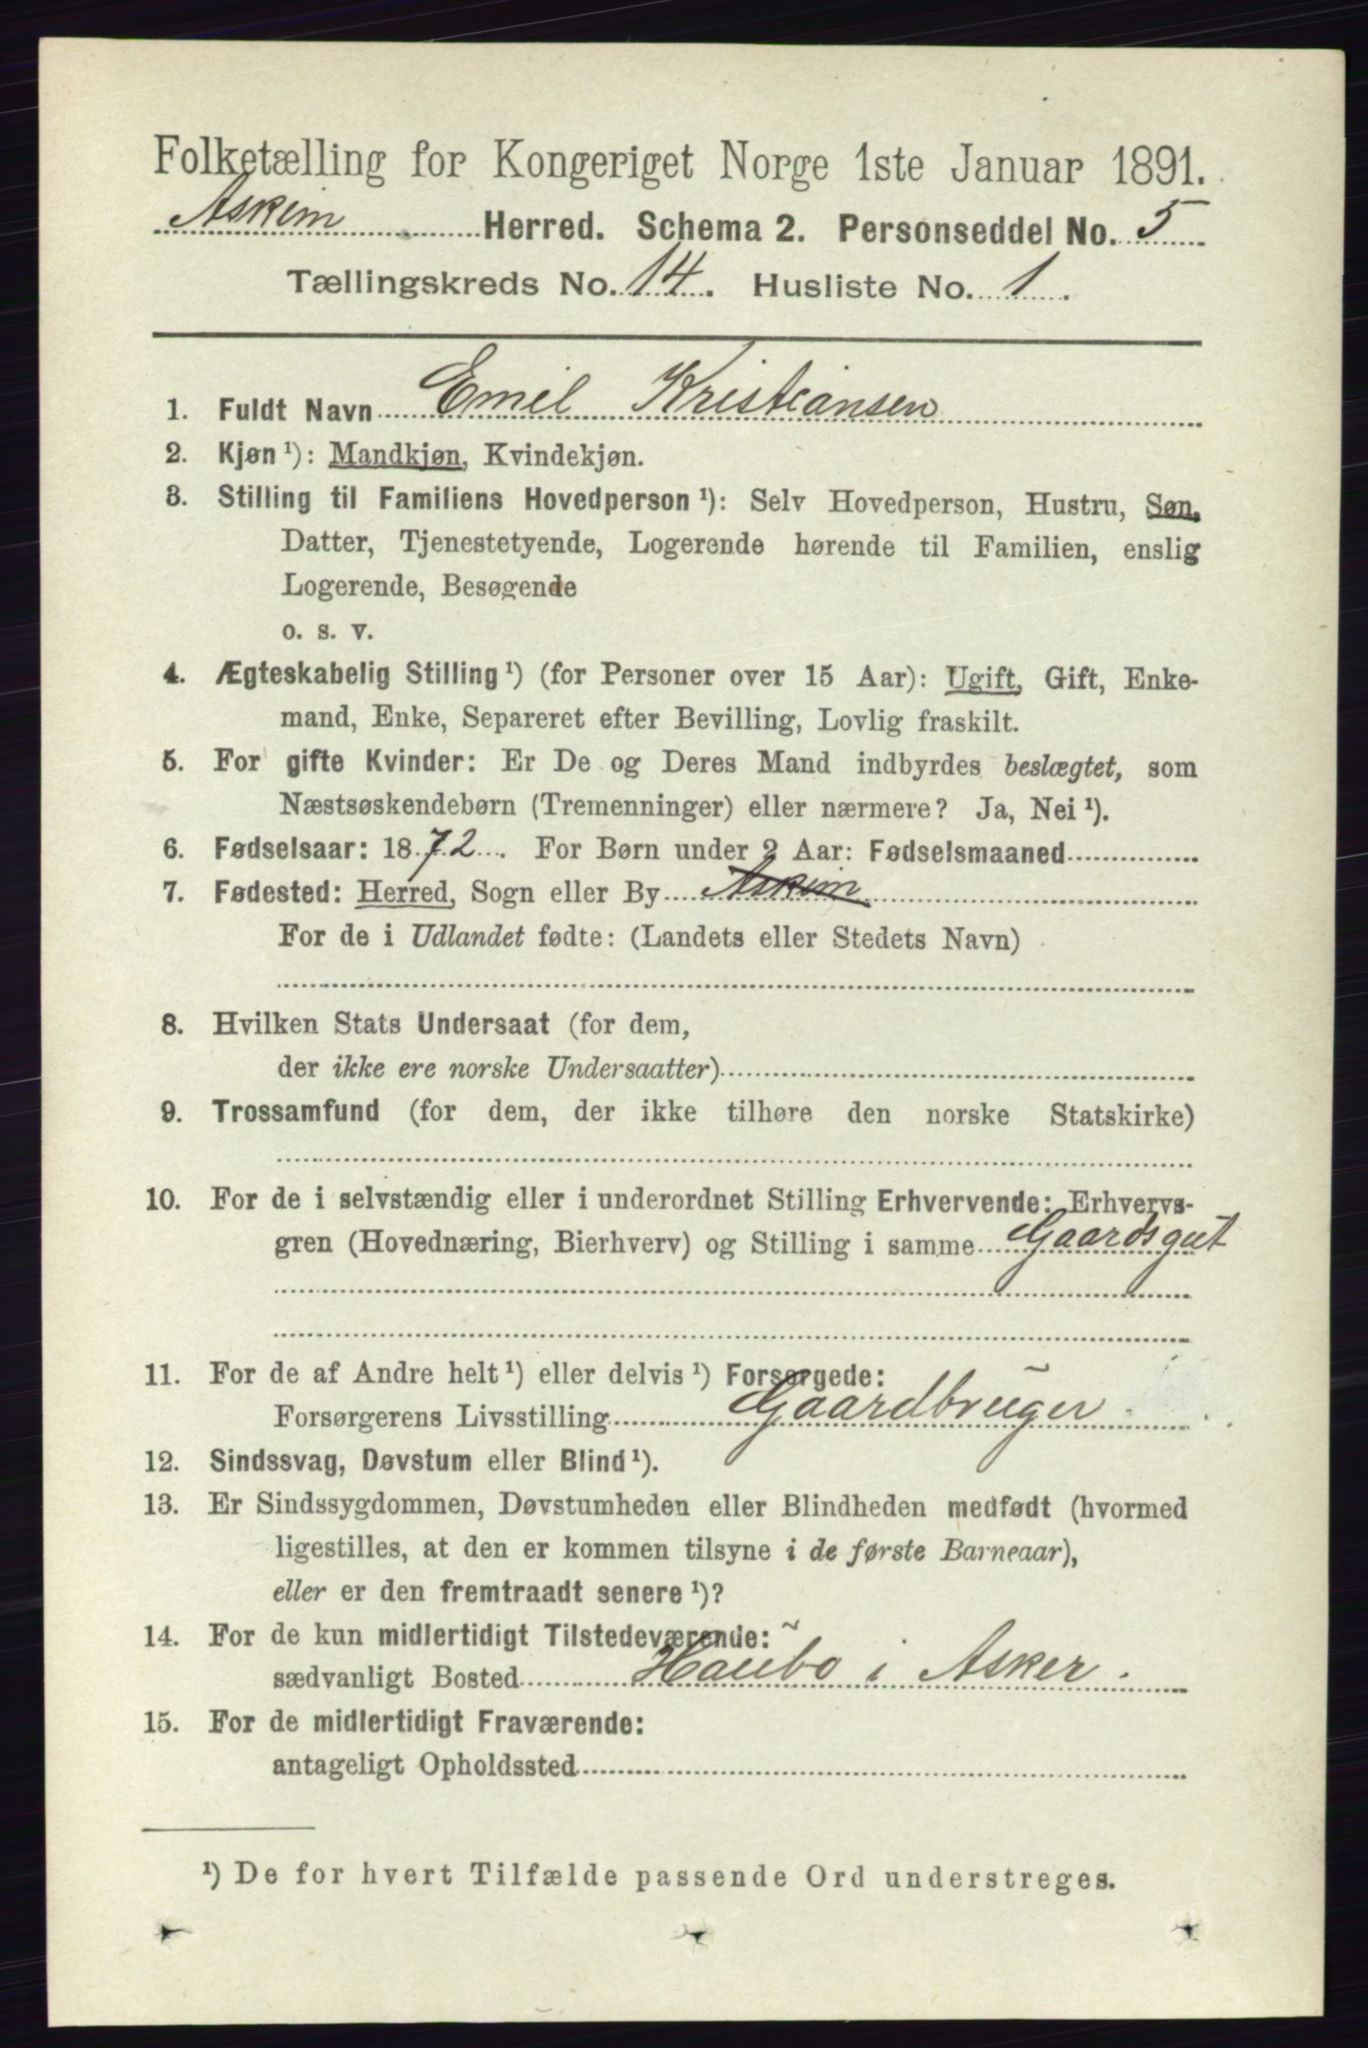 Folketælling for Kongeriget Norge 1ste Januar 1891.
Askim Herred. Schema 2. Personseddel No. 5
Tællingskreds No. 14. Husliste No. 1.
1. Fuldt Navn Emil Kristiansen
2. Kjøn ¹): Mandkjøn, Kvindekjøn.
3. Stilling til Familiens Hovedperson ¹): Selv Hovedperson, Hustru, Søn,
Datter, Tjenestetyende, Logerende hørende til Familien, enslig
Logerende, Besøgende
o. s. v.
4. Ægteskabelig Stilling ¹) (for Personer over 15 Aar): Ugift, Gift, Enke-
mand, Enke, Separeret efter Bevilling, Lovlig fraskilt.
5. For gifte Kvinder: Er De og Deres Mand indbyrdes beslægtet, som
Næstsøskendebørn (Tremenninger) eller nærmere? Ja, Nei ¹).
6. Fødselsaar: 1872. For Børn under 2 Aar: Fødselsmaaned
7. Fødested: Herred, Sogn eller By Askim
For de i Udlandet fødte: (Landets eller Stedets Navn)
8. Hvilken Stats Undersaat (for dem,
der ikke ere norske Undersaatter)
9. Trossamfund (for dem, der ikke tilhøre den norske Statskirke)
10. For de i selvstændig eller i underordnet Stilling Erhvervende: Erhvervs-
gren (Hovednæring, Bierhverv) og Stilling i samme Gaardsgut
11. For de af Andre helt ¹) eller delvis ¹) Forsørgede:
Forsørgerens Livsstilling Gaardbruger.
12. Sindssvag, Døvstum eller Blind ¹).
13. Er Sindssygdommen, Døvstumheden eller Blindheden medfødt (hvormed
ligestilles, at den er kommen tilsyne i de første Barneaar),
eller er den fremtraadt senere ¹)?
14. For de kun midlertidigt Tilstedeværende:
sædvanligt Bosted Haubo i Asker.
15. For de midlertidigt Fraværende:
antageligt Opholdssted
¹) De for hvert Tilfælde passende Ord understreges.